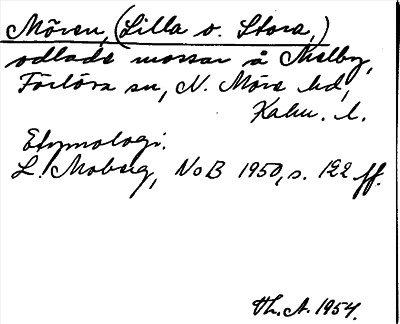 Mören, (Lilla o. Stora,)
odlade mossar å Melby,
Förlösa sn, N. Möre hd,
Kalm. l.
Etymologi.
L. Moberg, NoB 1950, s. 122 ff.
Th. A. 1954.